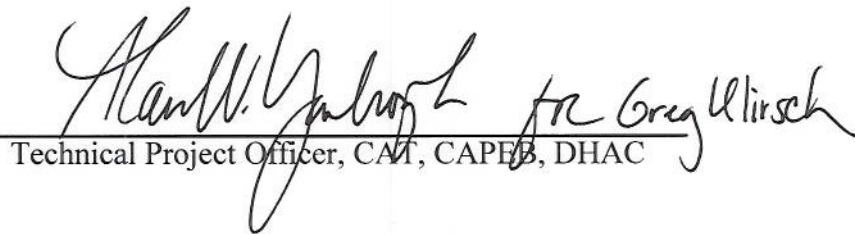 Alan W. Yarbrough for Greg Ulirsch
Technical Project Officer, CAT, CAPEB, DHAC